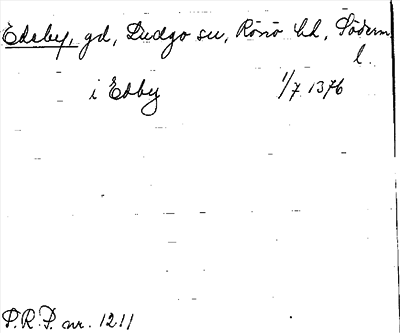 Edeby, gd, Ludgo sn, Rönö hd, Söderm
l.
i Edby 1/7 1376
P.R.P. nr. 1211